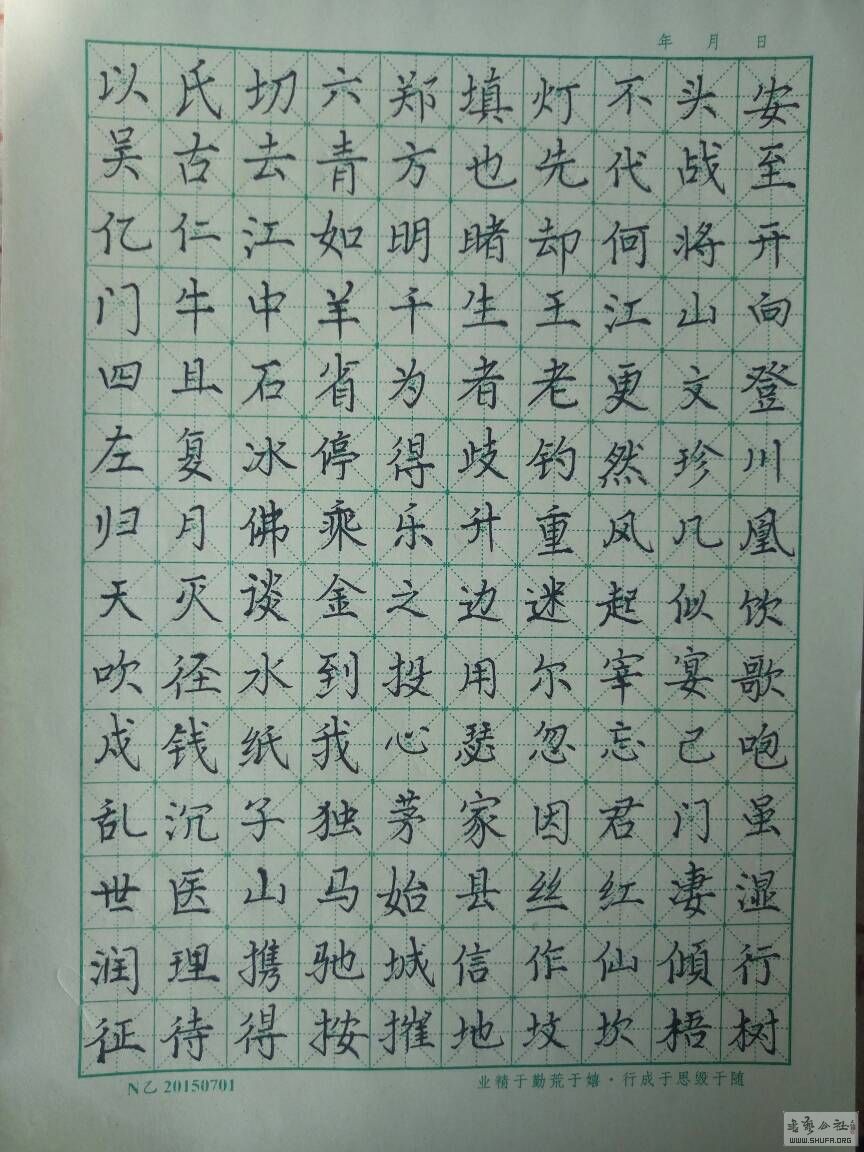 年 月 日
以氏切六郑填灯不头安
吴古去青方也先代战至
亿仁江如明睹却何将开
门牛中羊干生王江山向
四且石省为者老更文登
左复冰停得歧钓然珍川
归月佛乘乐升重凤几凰
天灭谈金之边迷起似饮
吹径水到投用尔宰宴歌
成钱纸我心瑟忽忘己咆
乱沉子独茅家因君门虽
世医山马始县丝红凄湿
润理携驰城信作仙倾行
征待得按摧地坟坎梧树
N乙 20150701
业精于勤荒于嬉·行成于思毁于随
WWW.SHUFA.ORG